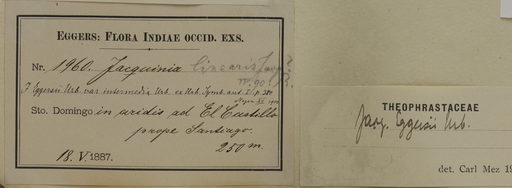 EGGERS: FLORA INDIAE OCCID. EXS.
Nr. 1960. Jacquinia linearis Jacq. ?
J. Eggersii Urb. var. intermedia Urb. ex Urb. Symb. ant.
Sto. Domingo in aridis ad El Castillo
prope Santiago.
250 m.
18. V. 1887.
THEOPHRASTACEAE
Jacq. Eggersii Urb.
det. Carl Mez 19